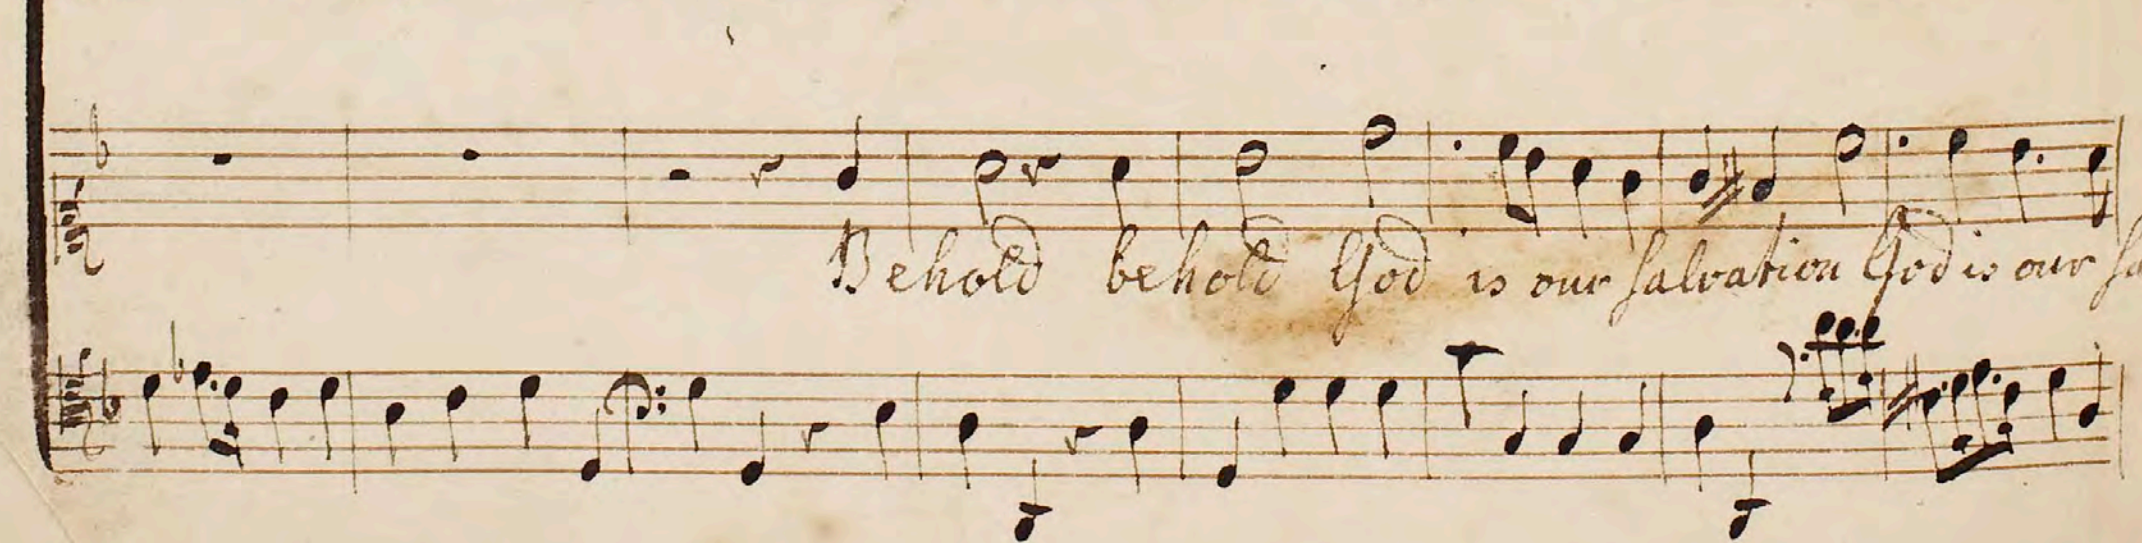 Behold behold God is our salvation God is our sa